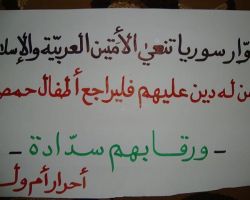 ثوار سوريا تنعي الأمتين العربيّة والإسلا
من له دين عليهم فليراجع أطفال حمص
- ورقابهم سدّادة -
أحرار أم ول